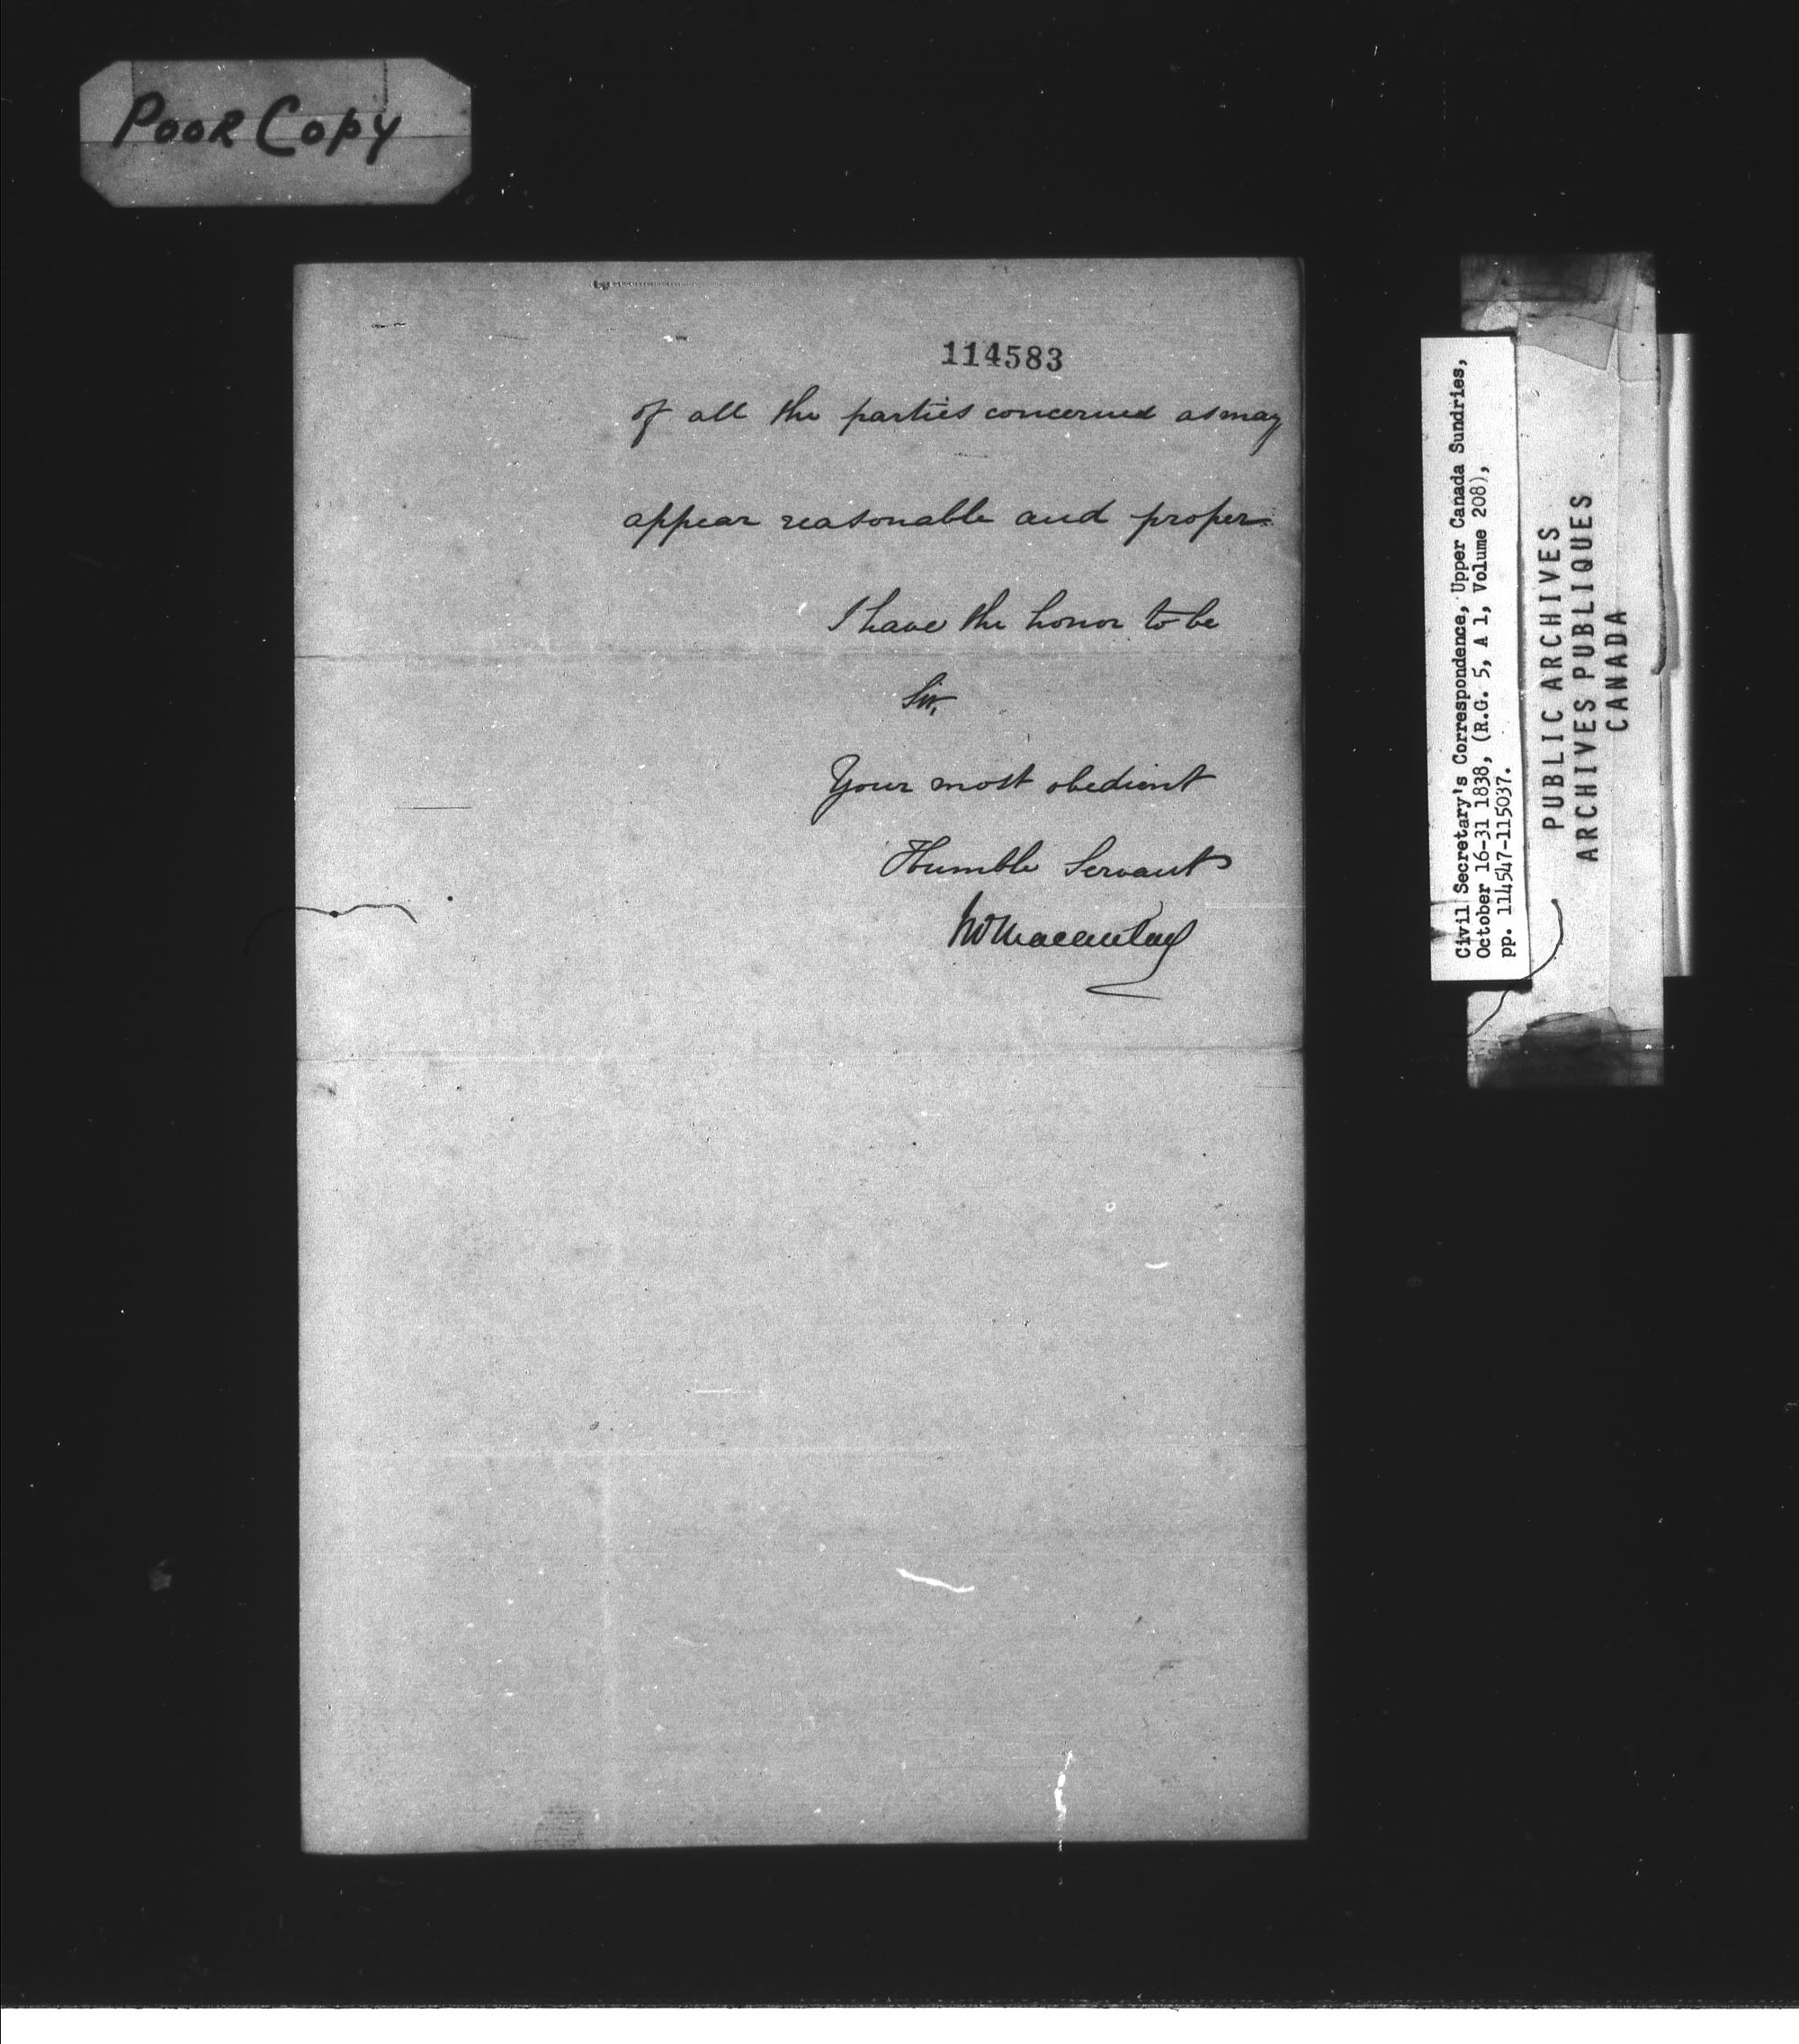 Poor Copy
114583
of all the parties concerned as may
appear reasonable and proper.
I have the honor to be
Sir,
Your most obedient
Humble Servant
Civil Secretary's Correspondence, Upper Canada Sundries,
October 16-31 1838, (R.G. 5, A 1, Volume 208),
pp. 114547-115037.
PUBLIC ARCHIVES
ARCHIVES PUBLIQUES
CANADA